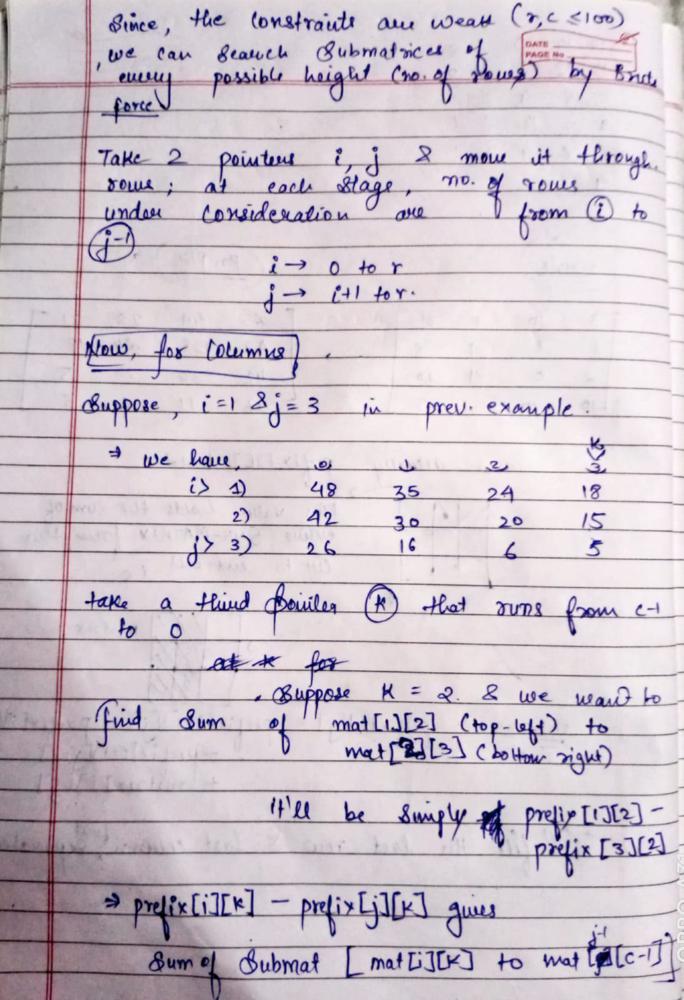 Since, the constraints are weak (r,c ≤100)
DATE
PAGE No
, we can search submatrices of
every possible height (no. of rows) by Brute
force
Take 2 pointers i, j & move it through
rows; at each stage, no. of rows
under consideration are from i to
j-1
i → 0 to r
j → i+1 to r.
Now, for Columns
Suppose, i=1 & j=3 in prev. example.
K
⇒ we have, 0 1 2 3
i> 1) 48 35 24 18
2) 42 30 20 15
j> 3) 26 16 6 5
take a third pointer K that runs from c-1
to 0
. Suppose K = 2. & we want to
find sum of mat[1][2] (top-left) to
mat[2][3] (bottom right)
it'll be simply prefix[1][2] -
prefix[3][2]
⇒ prefix[i][K] - prefix[j][K] gives
j-1
Sum of Submat [mat[i][K] to mat[ ][C-1]]